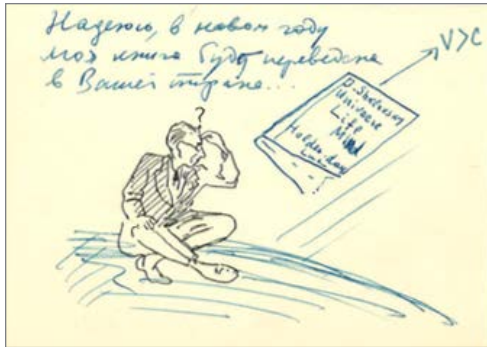 Надеюсь, в новом году
моя книга будет переведена
в Вашей стране...
V>C
?
Universe
Life
Mind
Holden-day